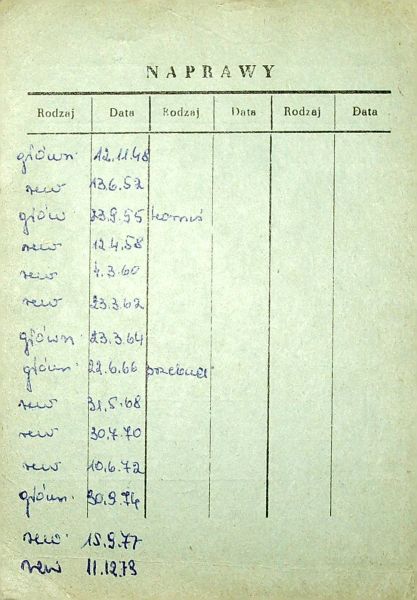 NAPRAWY
Rodzaj Data Rodzaj Data Rodzaj Data
główn. 12.11.48
rew 13.6.52
główn 23.9.55
rew 12.4.58
rew 4.3.60
rew 23.3.62
główn. 23.3.64
główn. 22.6.66
rew 31.5.68
rew 30.7.70
rew 10.6.72
główn. 30.9.74
rew. 15.9.77
rew 11.12.79